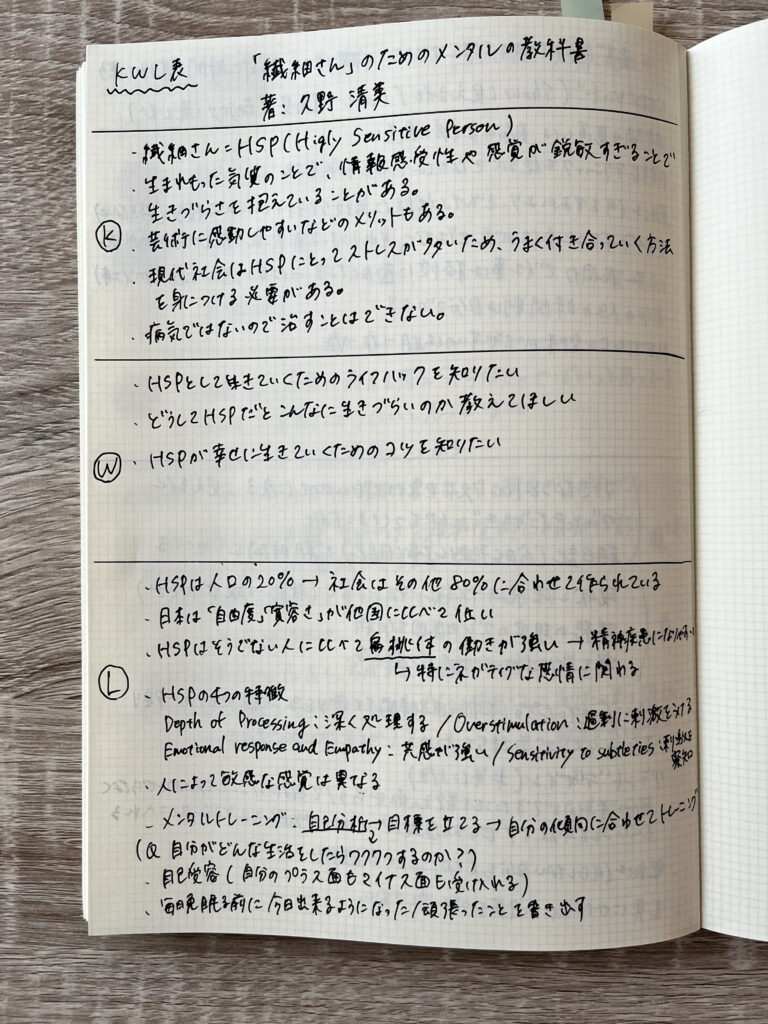 KWL表
「繊細さん」のためのメンタルの教科書
著: 久野 清美
・繊細さん=HSP(Higly Sensitive Person)
・生まれもった気質のことで、情報感受性や感覚が鋭敏すぎることで
生きづらさを抱えていることがある。
K
・芸術に感動しやすいなどのメリットもある。
・現代社会はHSPにとってストレスが多いため、うまく付き合っていく方法
を身につける必要がある。
・病気ではないので治すことはできない。
・HSPとして生きていくためのライフハックを知りたい
・どうしてHSPだとこんなに生きづらいのか教えてほしい
W
・HSPが幸せに生きていくためのコツを知りたい
・HSPは人口の20%→社会はその他80%に合わせて作られている
・日本は「自由度」「寛容さ」が他国に比べて低い
・HSPはそうでない人に比べて扁桃体の働きが強い→精神疾患になりやすい
↳特にネガティブな感情に関わる
L
・HSPの4つの特徴
Depth of Processing:深く処理する/Overstimulation:過剰に刺激を受ける
Emotional response and Empathy:共感が強い/Sensitivity to subtleties:刺激を
察知
・人によって敏感な感覚は異なる
・メンタルトレーニング:自己分析→目標を立てる→自分の傾向に合わせてトレーニング
(Q 自分がどんな生活をしたらワクワクするのか?)
・自己受容(自分のプラス面もマイナス面も受け入れる)
・毎日晩眠る前に今日出来るようになった/頑張ったことを書き出す